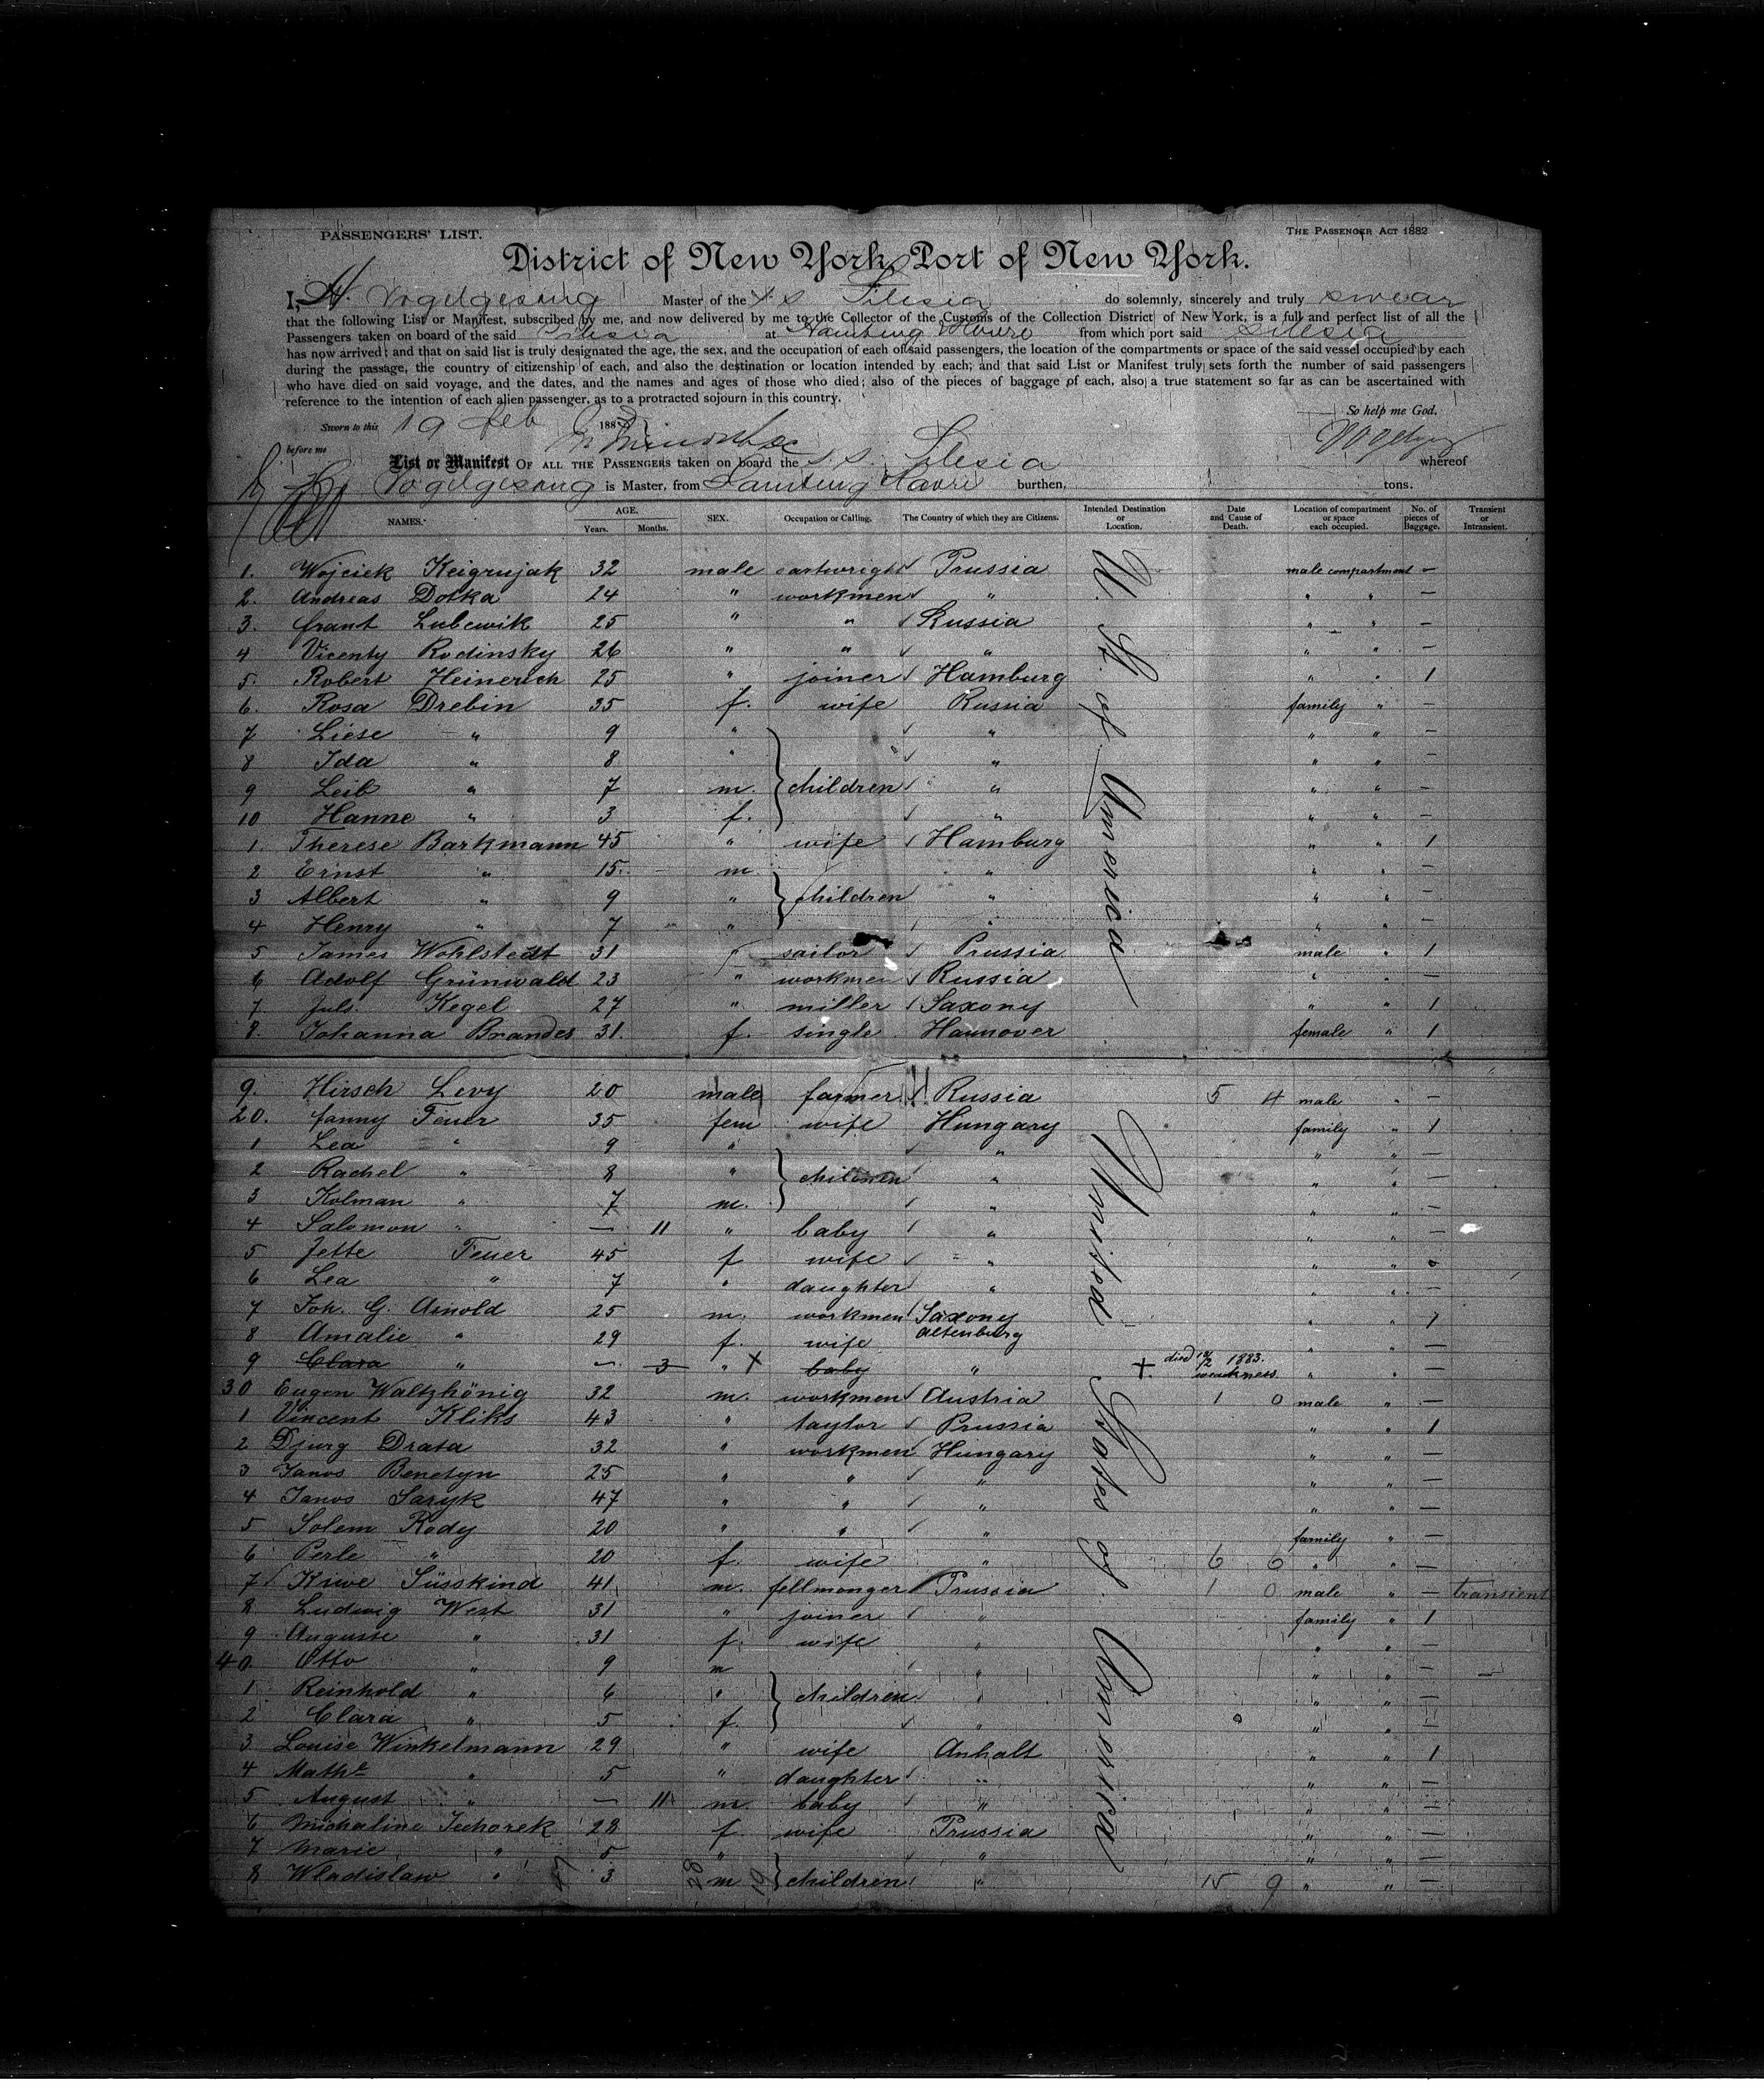 PASSENGERS' LIST. THE PASSENGER ACT 1882
District of New York, Port of New York.
I, H. Vogelgesang Master of the S. S. Silesia do solemnly, sincerely and truly swear
that the following List or Manifest, subscribed by me, and now delivered by me to the Collector of the Customs of the Collection District of New York, is a full and perfect list of all the
Passengers taken on board of the said Silesia at Hamburg Havre from which port said Silesia
has now arrived; and that on said list is truly designated the age, the sex, and the occupation of each of said passengers, the location of the compartments or space of the said vessel occupied by each
during the passage, the country of citizenship of each, and also the destination or location intended by each; and that said List or Manifest truly sets forth the number of said passengers
who have died on said voyage, and the dates, and the names and ages of those who died; also of the pieces of baggage of each, also a true statement so far as can be ascertained with
reference to the intention of each alien passenger, as to a protracted sojourn in this country.
So help me God.
Sworn to this 19 feb 1883
before me
List or Manifest OF ALL THE PASSENGERS taken on board the S. S. Silesia whereof
Vogelgesang is Master, from Hamburg Havre burthen, tons.
NAMES. AGE. Years. Months. SEX. Occupation or Calling. The Country of which they are Citizens. Intended Destination or Location. Date and Cause of Death. Location of compartment or space each occupied. No. of pieces of Baggage. Transient or Intransient.
U. St. of America
1. Wojciek Keigrujak 32 male cartwright Prussia male compartment —
2. Andreas Dotka 24 " workmen " " " —
3. frant Lubewik 25 " " Russia " " —
4 Vicenty Rodinsky 26 " " " " " —
5. Robert Heinerich 25 " joiner Hamburg " " 1
6. Rosa Drebin 35 f. wife Russia family " —
7 Liese " 9 " " " " —
8 Ida " 8 " " " " —
9 Leib " 7 m. children " " " —
10 Hanne " 3 f. " " " —
1 Therese Barkmann 45 " wife Hamburg " " 1
2 Ernst " 15 m " " " —
3 Albert " 9 " children " " " —
4 Henry " 7 " " " " —
5 James Wohlstedt 31 " sailor Prussia male " 1
6 Adolf Grünwald 23 " workmen Russia " " —
7 Juls. Kegel 27 " miller Saxony " " 1
8. Johanna Brandes 31. f. single Hannover female " 1
United States of America
9. Hirsch Levy 20 male farmer Russia 5 4 male " —
20. fanny Feuer 35 fem wife Hungary family " 1
1 Lea " 9 " " " " —
2 Rachel " 8 " children " " " —
3 Kolman " 7 m. " " " —
4 Salomon " — 11 " baby " " " —
5 Jette Feuer 45 f wife " " "
6 Lea " 7 " daughter " " " —
7 Joh. G. Arnold 25 m. workmen Saxony altenburg " " 1
8 Amalie " 29 f. wife " " —
9 Clara " — 3 " X baby " + died 13/2 1883. weakness " " —
30 Eugen Waltzhönig 32 m. workmen Austria 1 0 male " —
1 Vincent Kliks 43 " taylor Prussia " " 1
2 Djurg Drata 32 " workmen Hungary " " —
3 Janos Benetyn 25 " " " " " —
4 Janos Saryk 47 " " " " " —
5 Solem Rody 20 " " " family " —
6 Perle " 20 f. wife " 6 6 " " —
7 Kiwe Süsskind 41 m. fellmonger Prussia 1 0 male " — transient
8. Ludwig West 31 " joiner " family " 1
9 Auguste " 31 f. wife " " " —
40. Otto " 9 m " " " —
1 Reinhold " 6 " children " " " —
2 Clara " 5 f. " " " —
3 Louise Winkelmann 29 " wife Anhalt " " 1
4 Mathe " 5 " daughter " " " —
5 August " — 11 m. baby " " " —
6 Michaline Tuchorek 28 f. wife Prussia " " —
7 Marie " 5 " " " " —
8 Wladislaw " 3 m children " 15 9 " " —